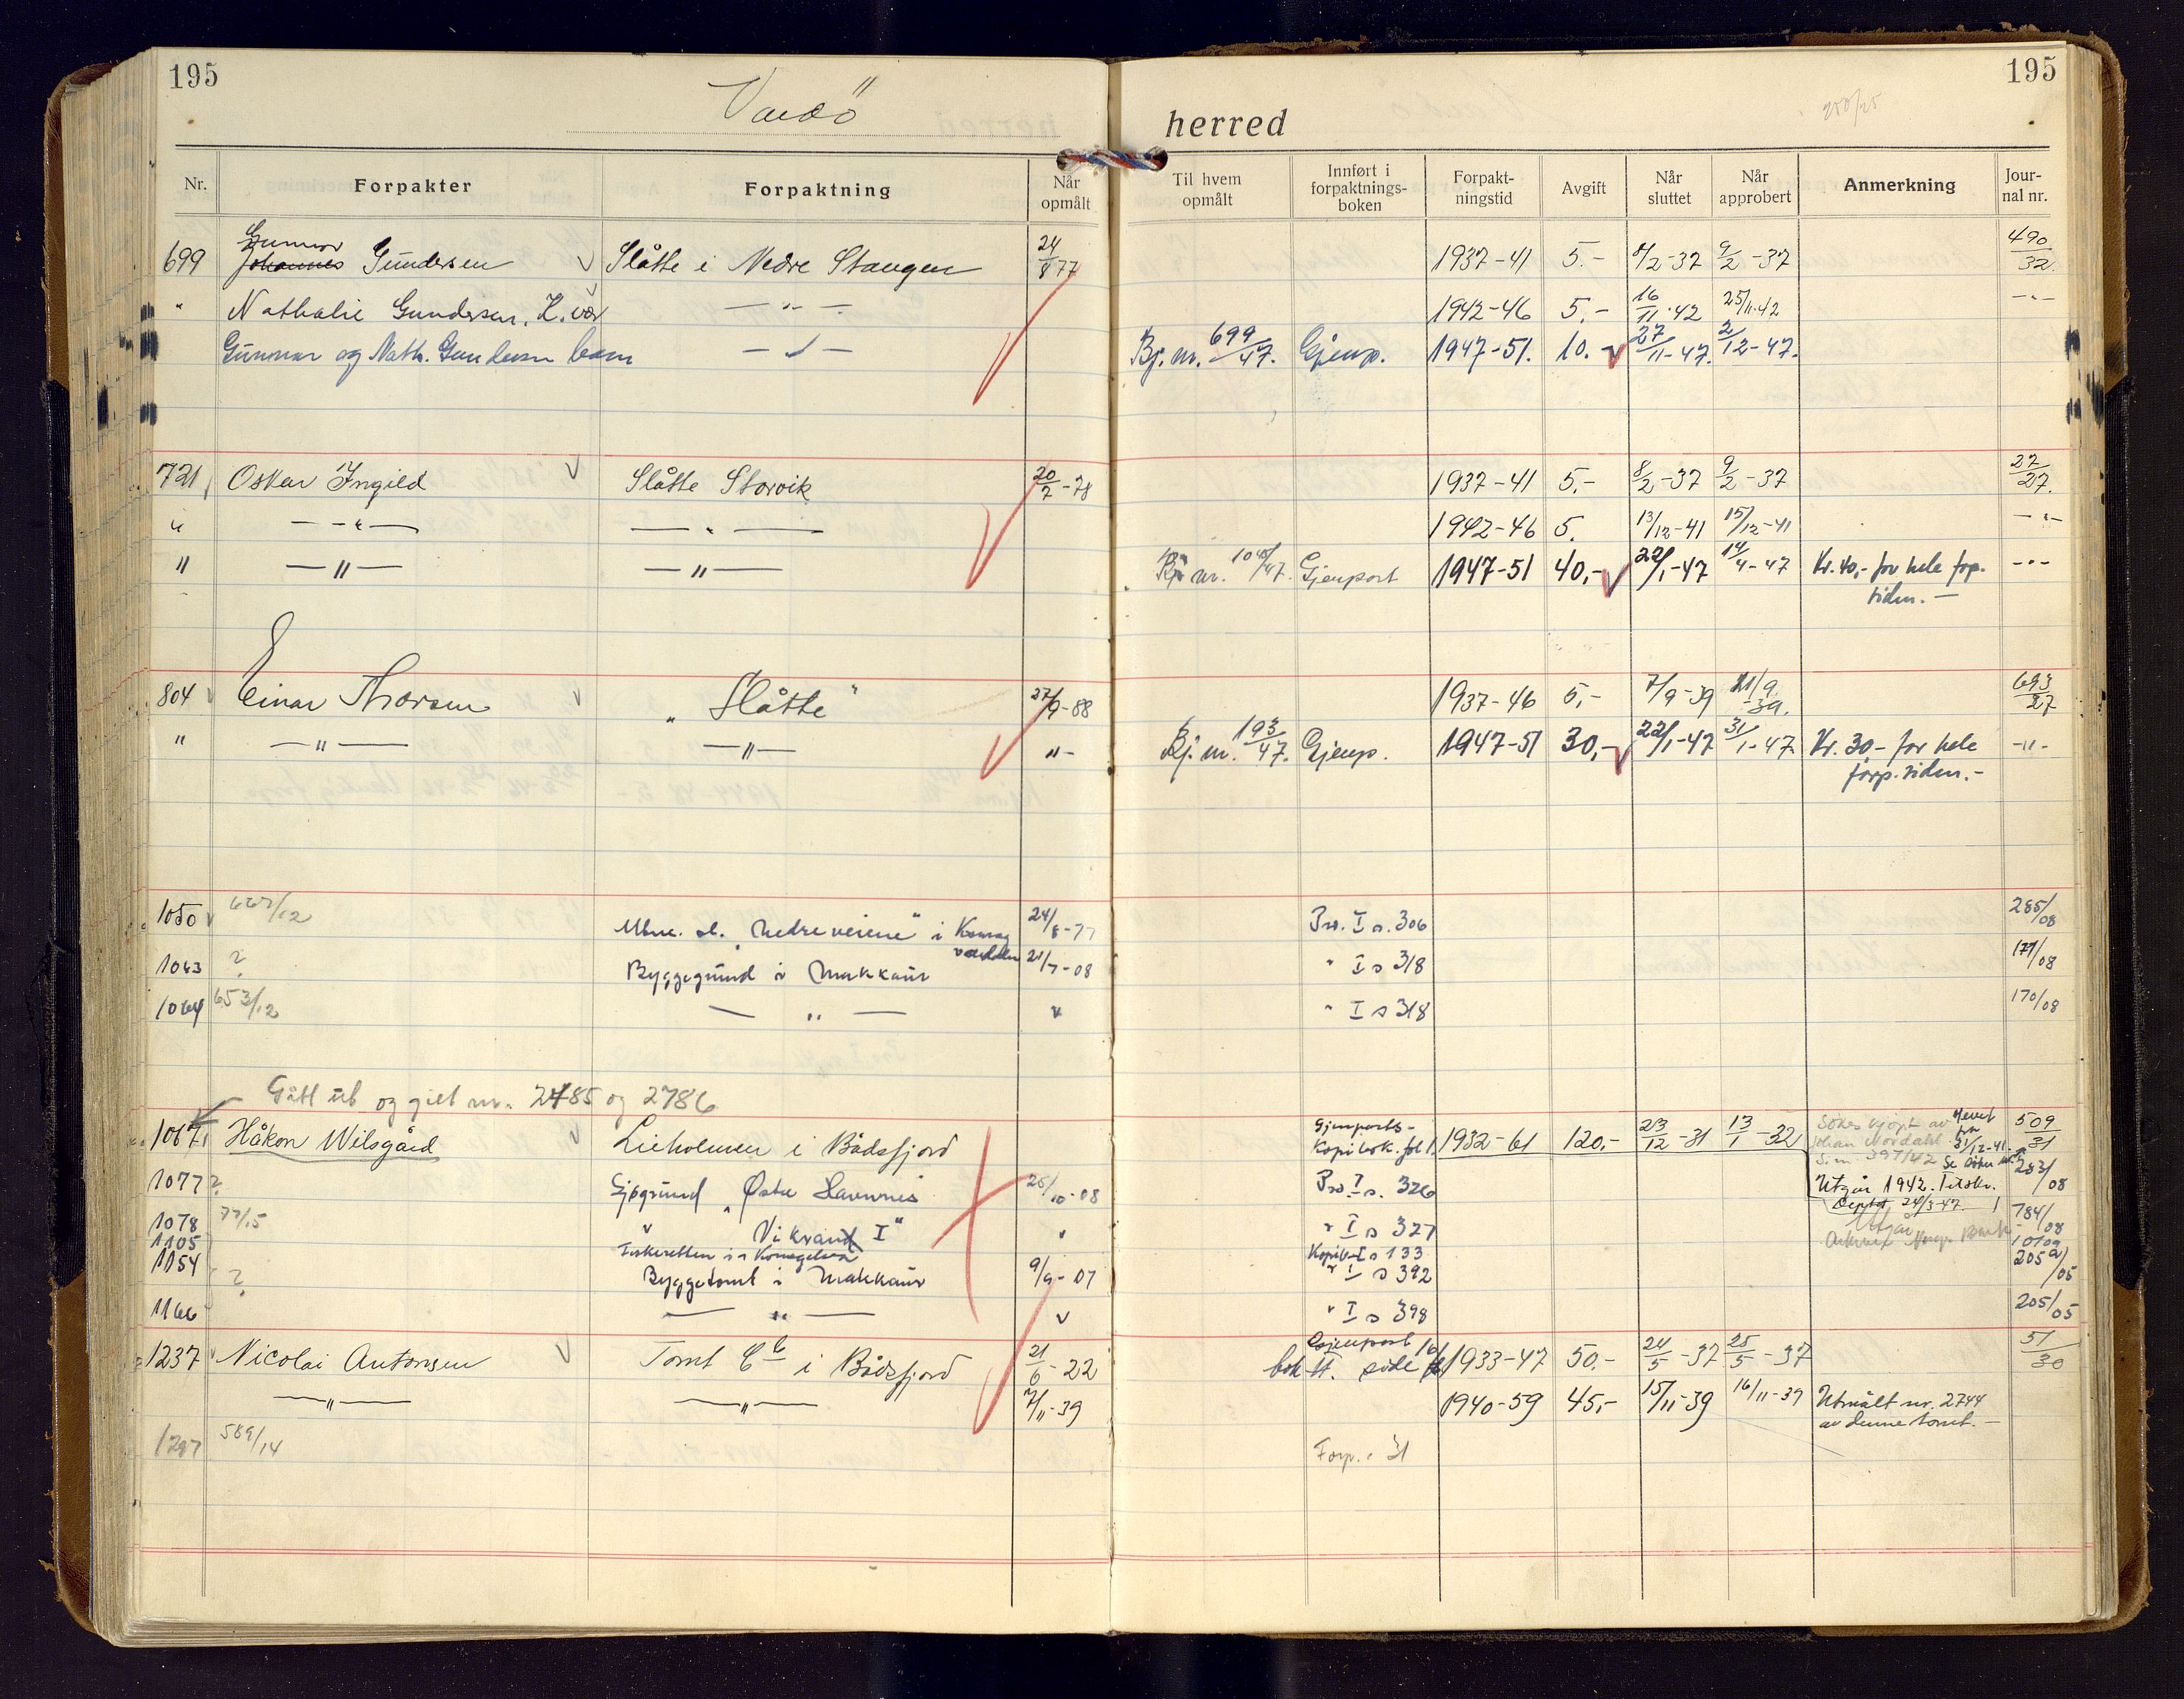 195
Vardö
herred
195
Nr. Forpakter Forpaktning Når opmålt Til hvem opmålt Innført i forpaktnings-boken Forpakt-ningstid Avgift Når sluttet Når approbert Anmerkning Jour-nal nr.
699 Gunnar Johannes Gundersen V Slåtte i Nedre Stangen 24/8 77 1937-41 5.- 8/2-37 9/2-37 490/32.
" Nathalie Gundersen, K.vær — " — 1942-46 5.- 16/11-42 25/11-42 -"-
Gunnar og Nath. Gundersen — " — Bj. nr. 699/47. Gjenp. 1947-51. 10.- 27/11-47. 2/12-47.
721 Oskar Ingild V Slåtte Storvik 20/7-78 1937-41 5.- 8/2-37 9/2-37 27/27.
" — " — — " — 1942-46 5. 13/12-41 15/12-41 -"-
" — " — — " — Bj. nr. Gjenpart 1947-51 40,- 22/1-47 14/4-47 Kr. 40,- for hele forp. -"-
tiden.-
804 Einar Thorsen V "Slåtte" 27/9-88 1937-46 5,- 7/9-39 21/9-39. 693/27
" — " — — " — "- Bj. nr. 193/47. Gjenp. 1947-51 30,- 22/1-47 31/1-47 Kr. 30- for hele -"-
forp. tiden.-
1050 667/12 "Nedre veiene" i Komag 24/8-77 Pro. I s. 306 285/08
1063 ? Byggegrund i Makkaur 21/7-08 " I s 318 171/08
1064 653/12 — " — " " I s 318 170/08
Gått ut og gitt nr. 2785 og 2786
1067 Håkon Wilsgård V Lieholmen i Bådsfjord Gjenparts-Kopibok. fol 1. 1932-61 120,- 23/12-31 13/1-32 Søkes kjøpt av Johan Nordahl 509/31
S. nr. 397/42
1077 ? Sjøgrund "Østre Havnnes 26/10-08 Pro. I s. 326 Utgår 1942. 283/08
1078 77/15 " Vikran I" " " I s 327 784/08
1105 Fiskeretten i Komagelva Kopib. I s 133
1154 ? Byggetomt i Makkaur 9/9-07 " I s 392 205a/05
1166 — " — " " I s 398 205/05
1237 Nicolai Antonsen V Tomt C i Bådsfjord 21/6-22 Gjenpart bok II. side 1933-47 50.- 24/5-37 25/5-37 51/30
— " — — " — 7/11-39 1940-59 45,- 15/11-39 16/11-39 Utmålt nr. 2744
av denne tomt.-
1297 589/14 Forp. s 31